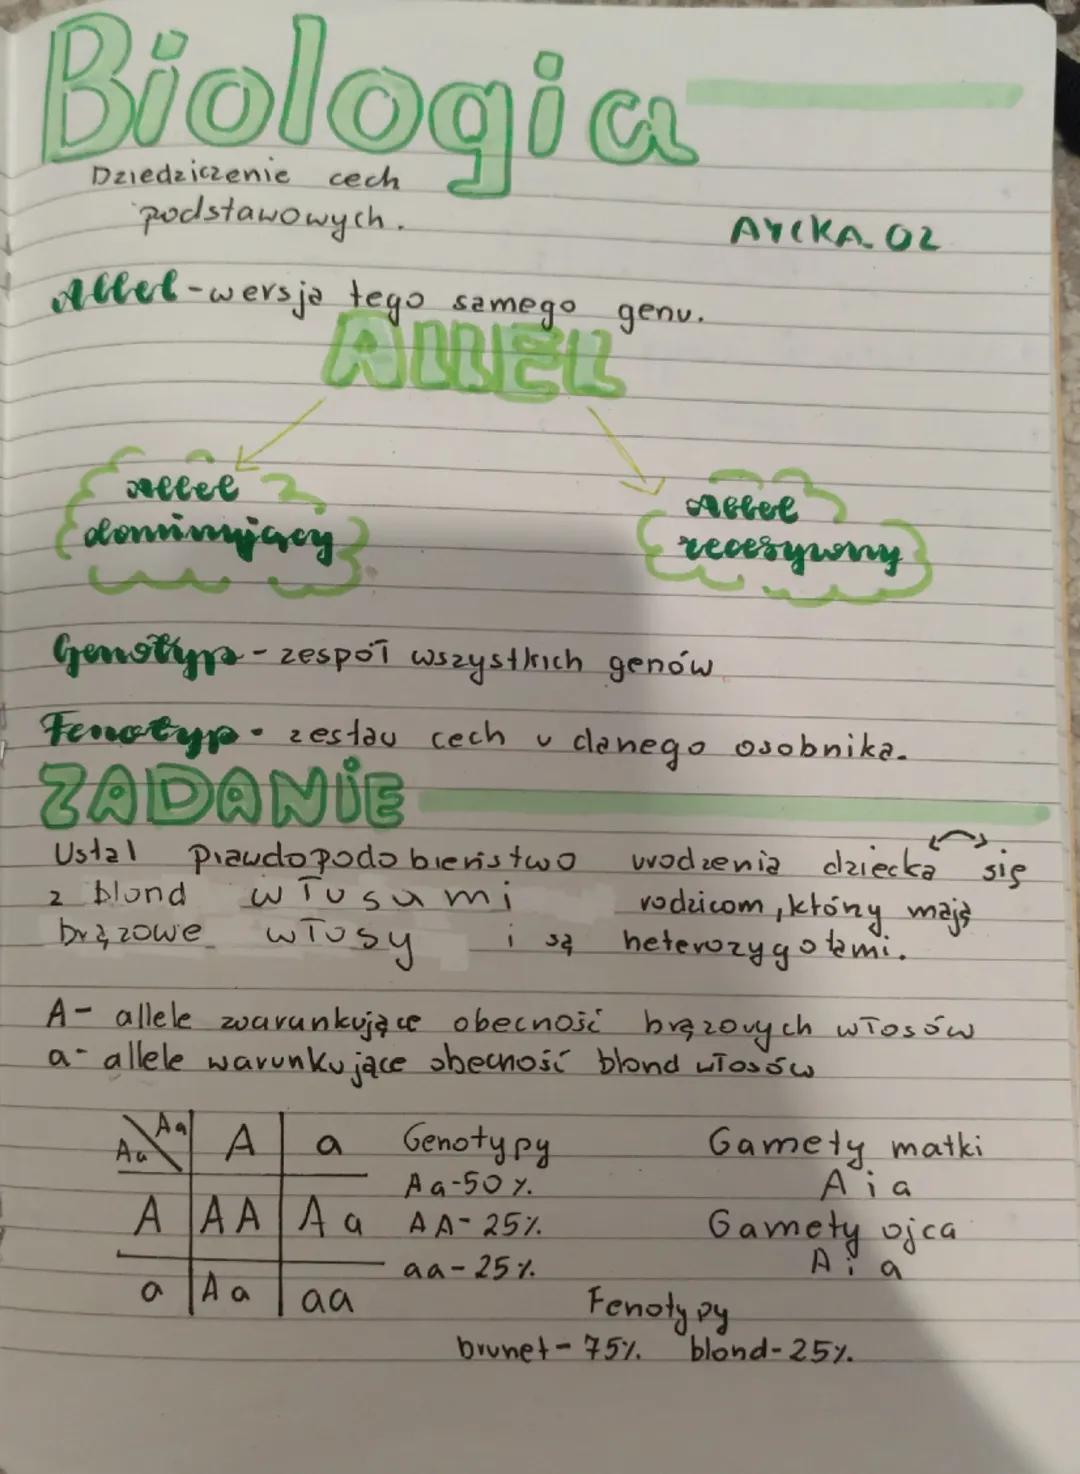 Biologia
Dziedziczenie cech
podstawowych.
AYCKA_02
Allel - wersja tego samego genu.
ALLEL
Allel
dominujący
Allel
recesywny
Genotyp - zespół wszystkich genów
Fenotyp - zestaw cech u danego osobnika.
ZADANIE
Ustal prawdopodobieństwo urodzenia dziecka się
z blond włosami rodzicom, który mają
brązowe włosy i są heterozygotami.
A - allele warunkujące obecność brązowych włosów
a - allele warunkujące obecność blond włosów
Aa
Aa A a
A AA Aa
a Aa aa
Genotypy
Aa - 50%.
AA - 25%.
aa - 25%.
Gamety matki
A i a
Gamety ojca
A i a
Fenotypy
brunet - 75%. blond - 25%.